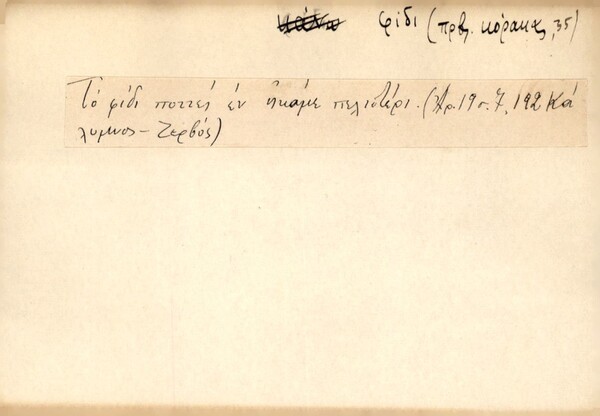 φίδι (πρβ. κόρακας, 35)
Τό φίδι ποττές έν ήκαμε πελιστέρι. (Αρ. 19 σ. 7, 192 Κά
λυμνος – Ζερβός)